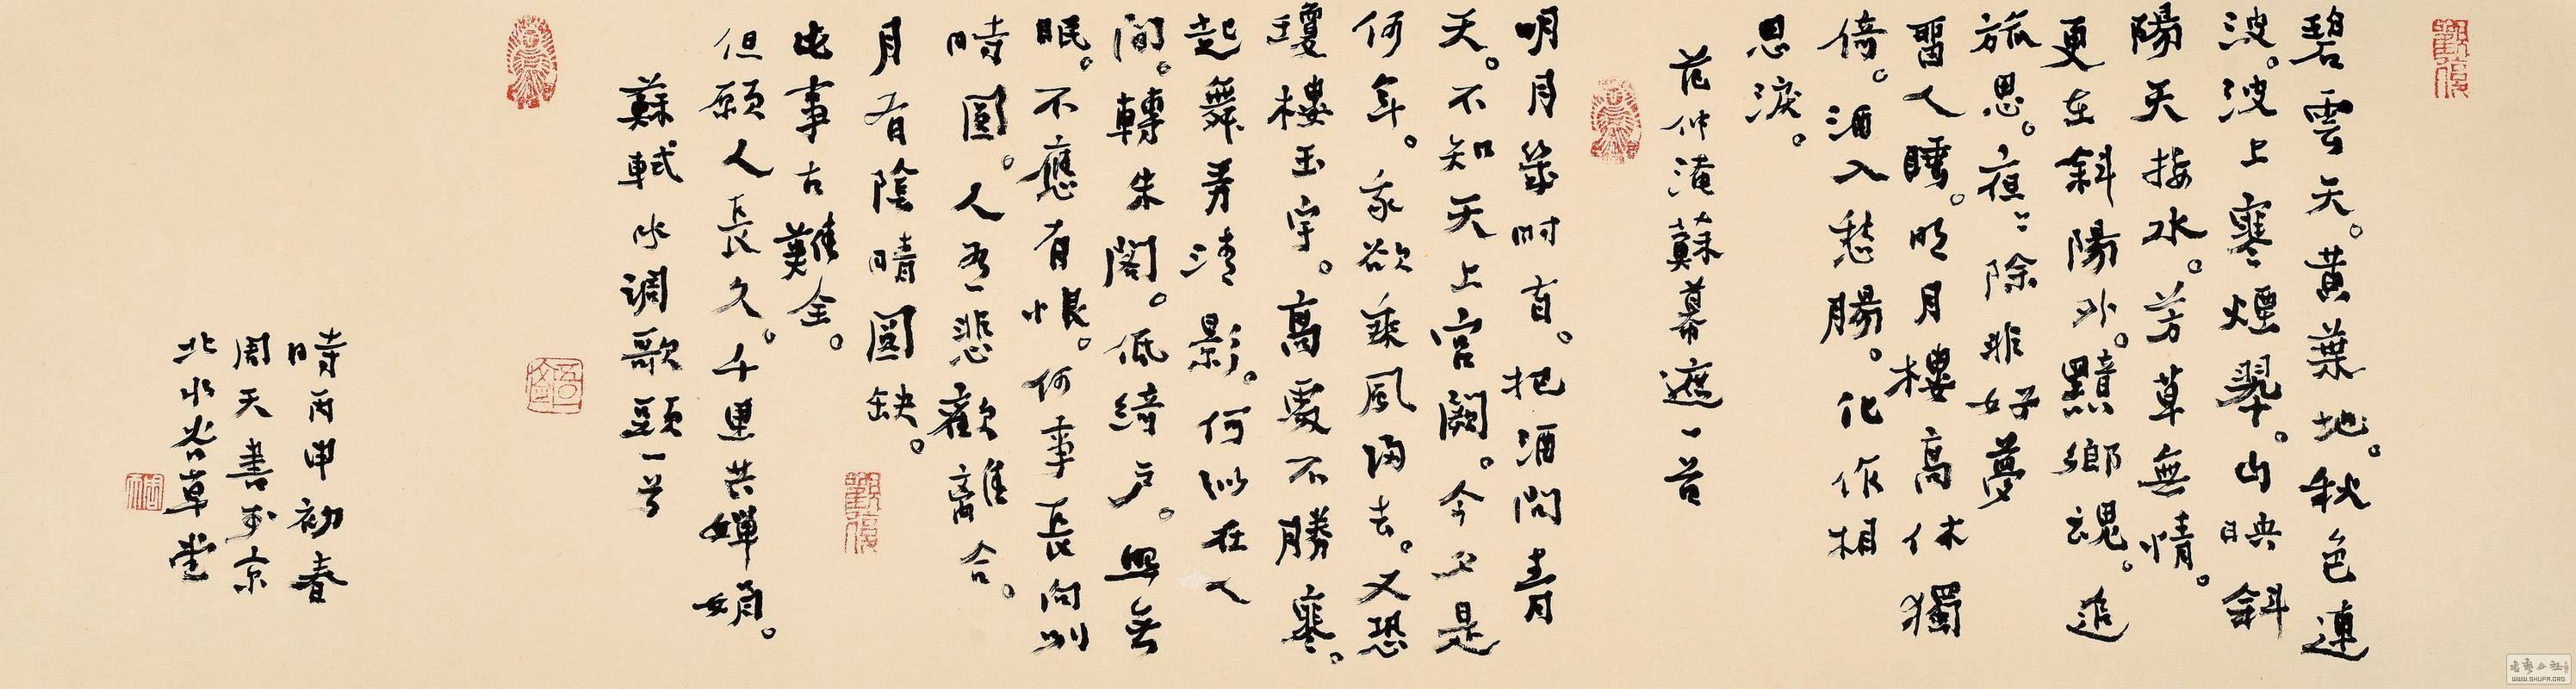 碧雲天。黄葉地。秋色連
波。波上寒煙翠。山映斜
陽天接水。芳草無情。
更在斜陽外。黯鄉魂。追
旅思。夜〻除非好夢
留人睡。明月樓高休獨
倚。酒入愁腸。化作相
思淚。
范仲淹蘇幕遮一首
明月幾时有。把酒问青
天。不知天上宫闕。今夕是
何年。我欲乘風歸去。又恐
瓊樓玉宇。高處不勝寒。
起舞弄清影。何似在人
間。轉朱閣。低綺户。照無
眠。不應有恨。何事長向别
時圓。人有悲歡離合。
月有陰晴圓缺。
此事古難全。
但願人長久。千里共嬋娟。
蘇軾水調歌頭一首
時丙申初春
周天書於京
北水岩草堂
WWW.SHUFA.ORG